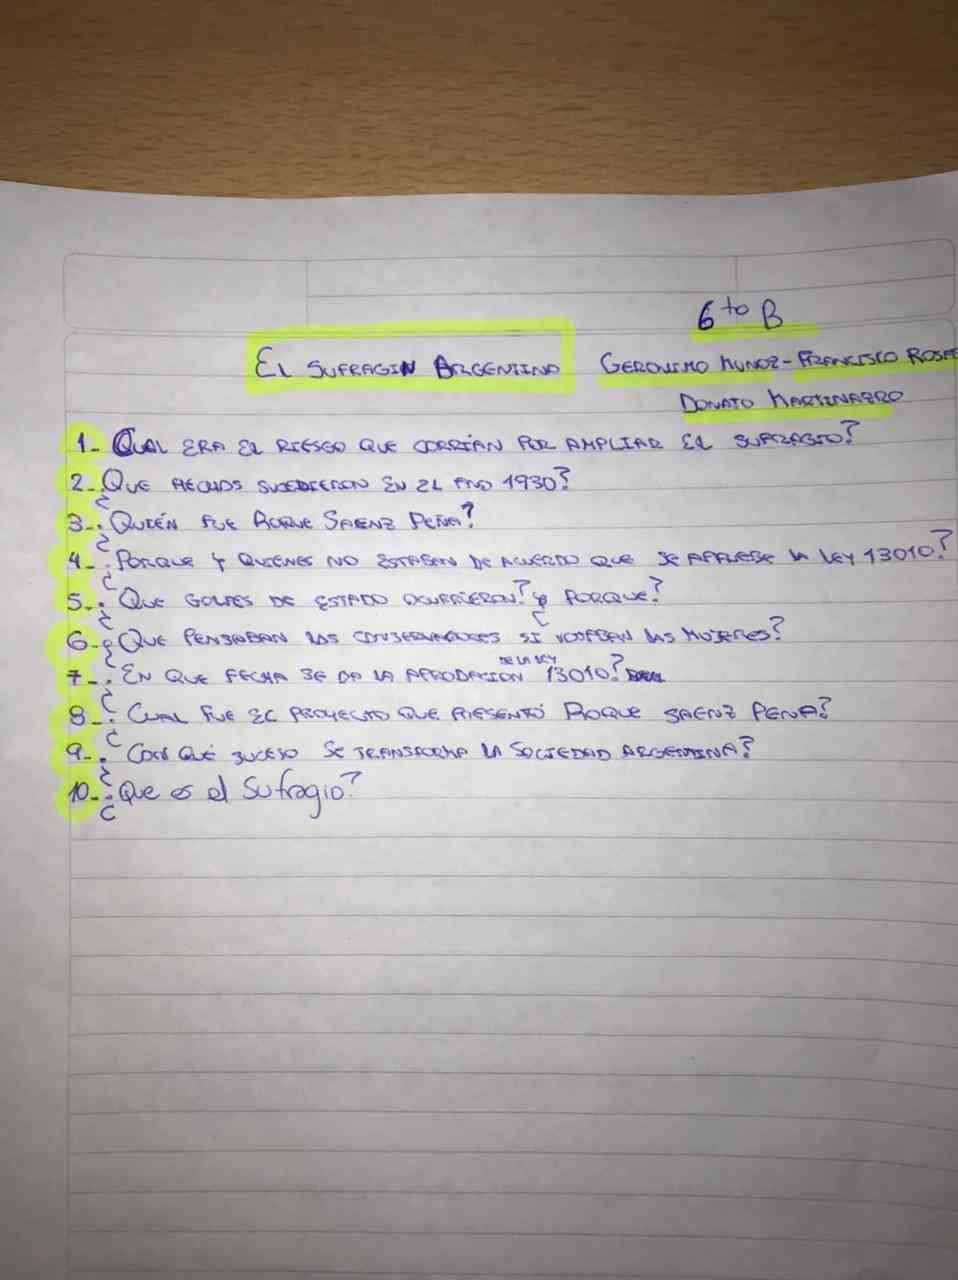 6to B
El Sufragin Argentino Geronimo Munoz - Francisco Rose
Donato Martinazzo
1- Qual era el riesgo que corrían por ampliar el sufragio?
2- ¿Que hechos sucedieron en el año 1930?
3- ¿Quién fue Roque Saenz Peña?
4- ¿Porque y quienes no estaban de acuerdo que se apruebe la ley 13010?
5- ¿Que golpes de estado ocurrieron? y ¿porque?
6- ¿Que pensaban los conservadores si votaban las mujeres?
7- ¿En que fecha se da la aprobacion de la ley 13010?
8- ¿Cual fue el proyecto que presentó Roque Saenz Pena?
9- ¿Con qué suceso se transforma la sociedad argentina?
10- ¿Que es el Sufragio?